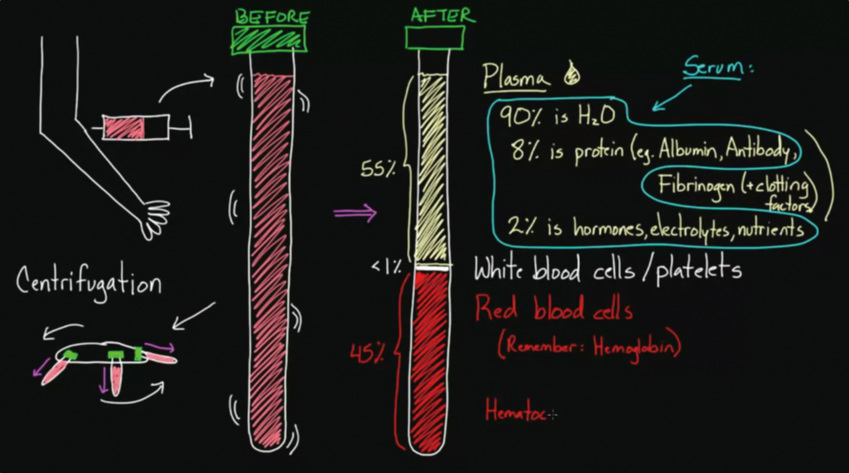 BEFORE
AFTER
Plasma
Serum:
90% is H₂O
8% is protein (eg. Albumin, Antibody,
Fibrinogen (+clotting
factors)
2% is hormones, electrolytes, nutrients
55%
<1%
White blood cells/platelets
Centrifugation
Red blood cells
45%
(Remember: Hemoglobin)
Hematoc